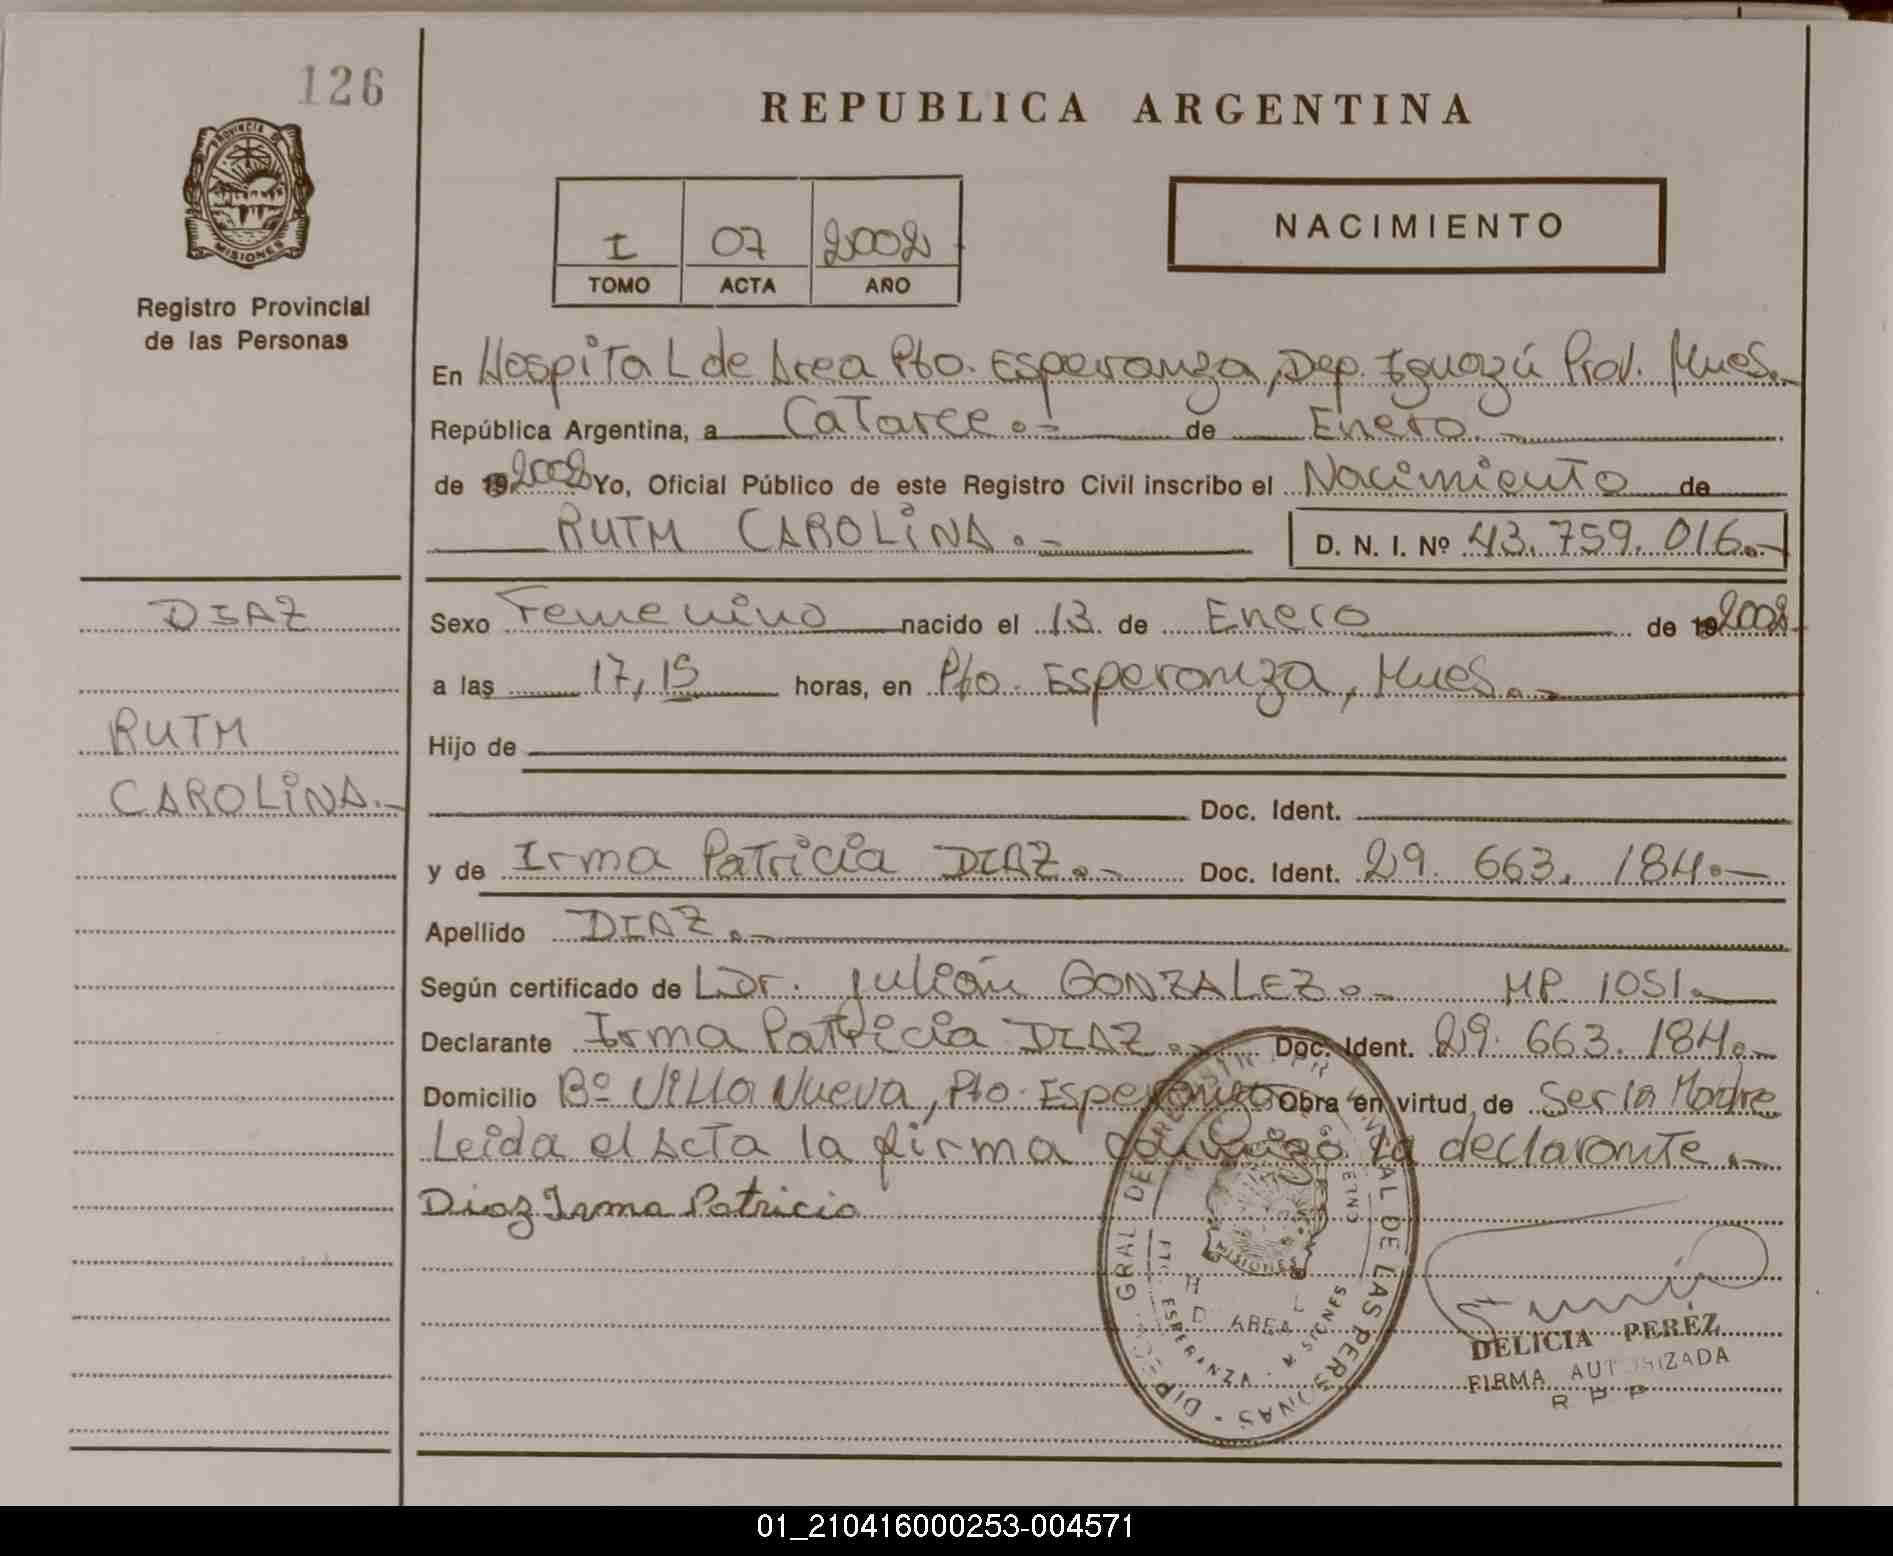 126
REPUBLICA ARGENTINA
PROVINCIA DE
MISIONES
Registro Provincial
de las Personas
I 07 2002
TOMO ACTA AÑO
NACIMIENTO
En Hospital de Area Pto. Esperanza, Dep. Iguazú Prov. Mnes.-
República Argentina, a Catorce.- de Enero.
de 19 2002 Yo, Oficial Público de este Registro Civil inscribo el Nacimiento de
RUTH CAROLINA.- D. N. I. Nº 43.759.016.-
DIAZ
RUTH
CAROLINA.-
Sexo Femenino nacido el 13 de Enero de 19 2002
a las 17,15 horas, en Pto. Esperanza, Mnes.-
Hijo de
Doc. Ident.
y de Irma Patricia DIAZ.- Doc. Ident. 29.663.184.-
Apellido DIAZ.-
Según certificado de Dr. Julián GONZALEZ.- MP 1051.-
Declarante Irma Patricia DIAZ.- Doc. Ident. 29.663.184.-
Domicilio Bº Villa Nueva, Pto. Esperanza Obra en virtud de Ser la Madre
Leida el Acta la firma conmigo la declarante.-
Diaz Irma Patricia
MISIONES
DELICIA PERÉZ
FIRMA AUTORIZADA
R P P
01_210416000253-004571